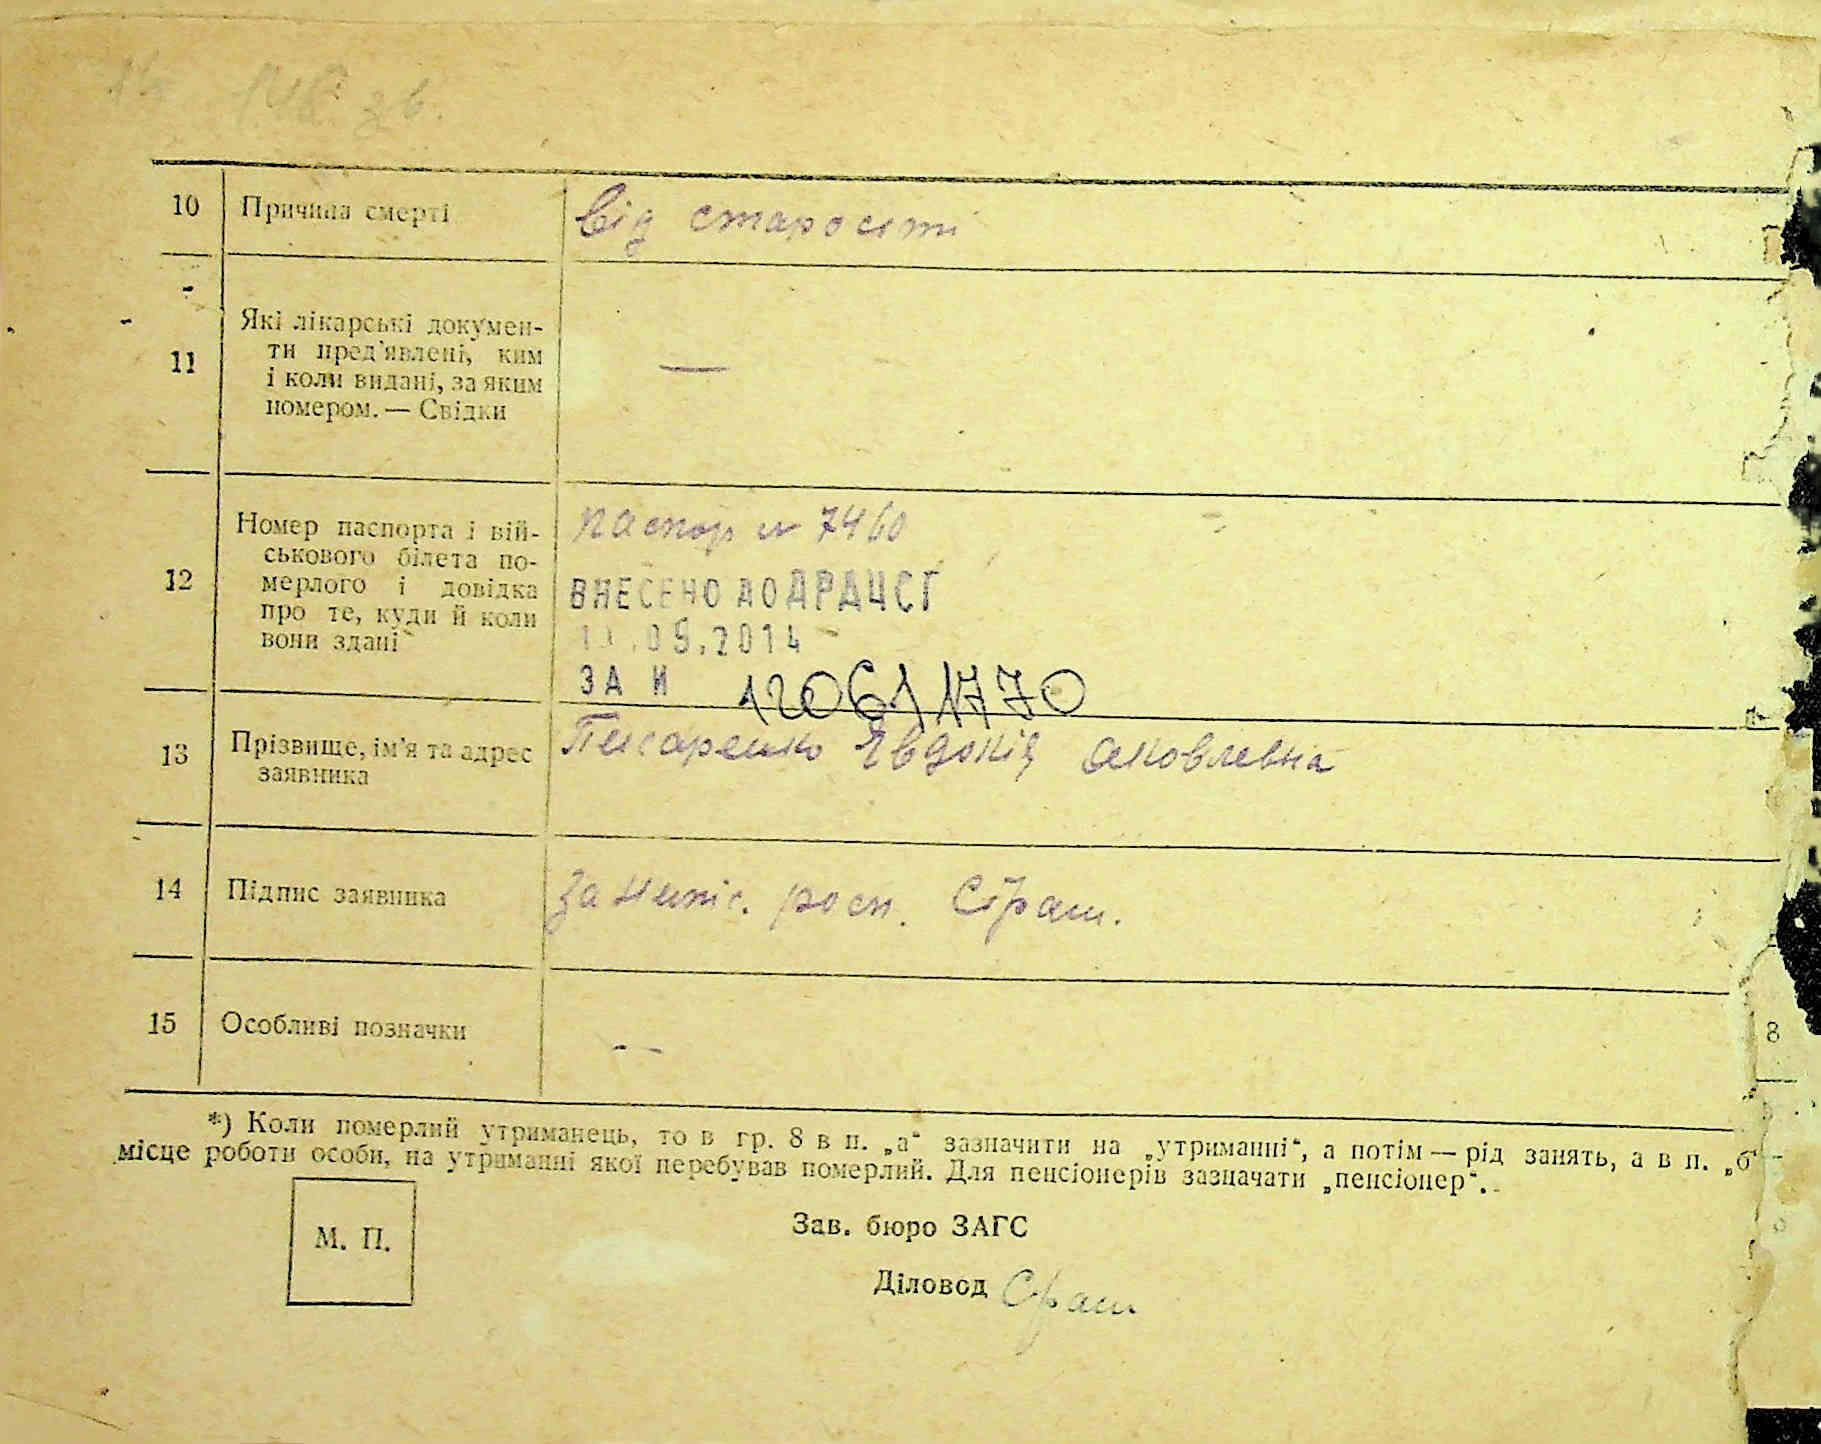 148 зв.
10 Причина смерті Від старости
11 Які лікарські докумен-
ти пред'явлені, ким
і коли видані, за яким
номером. — Свідки
—
Номер паспорта і вій- паспор № 7460
ськового білета по-
12 мерлого і довідка ВНЕСЕНО ДО ДРАЦСГ
про те, куди й коли
вони здані .09.2014
ЗА № 12061770
13 Прізвище, ім'я та адрес Писаренко Явдокія Яковлевна
заявника
14 Підпис заявника За непис. росп.
15 Особливі позначки —
8
*) Коли померлий утриманець, то в гр. 8 в п. „а“ зазначити на „утриманні“, а потім — рід занять, а в п. „б
місце роботи особи, на утриманні якої перебував померлий. Для пенсіонерів зазначати „пенсіонер“.
М. П.
Зав. бюро ЗАГС
Діловод